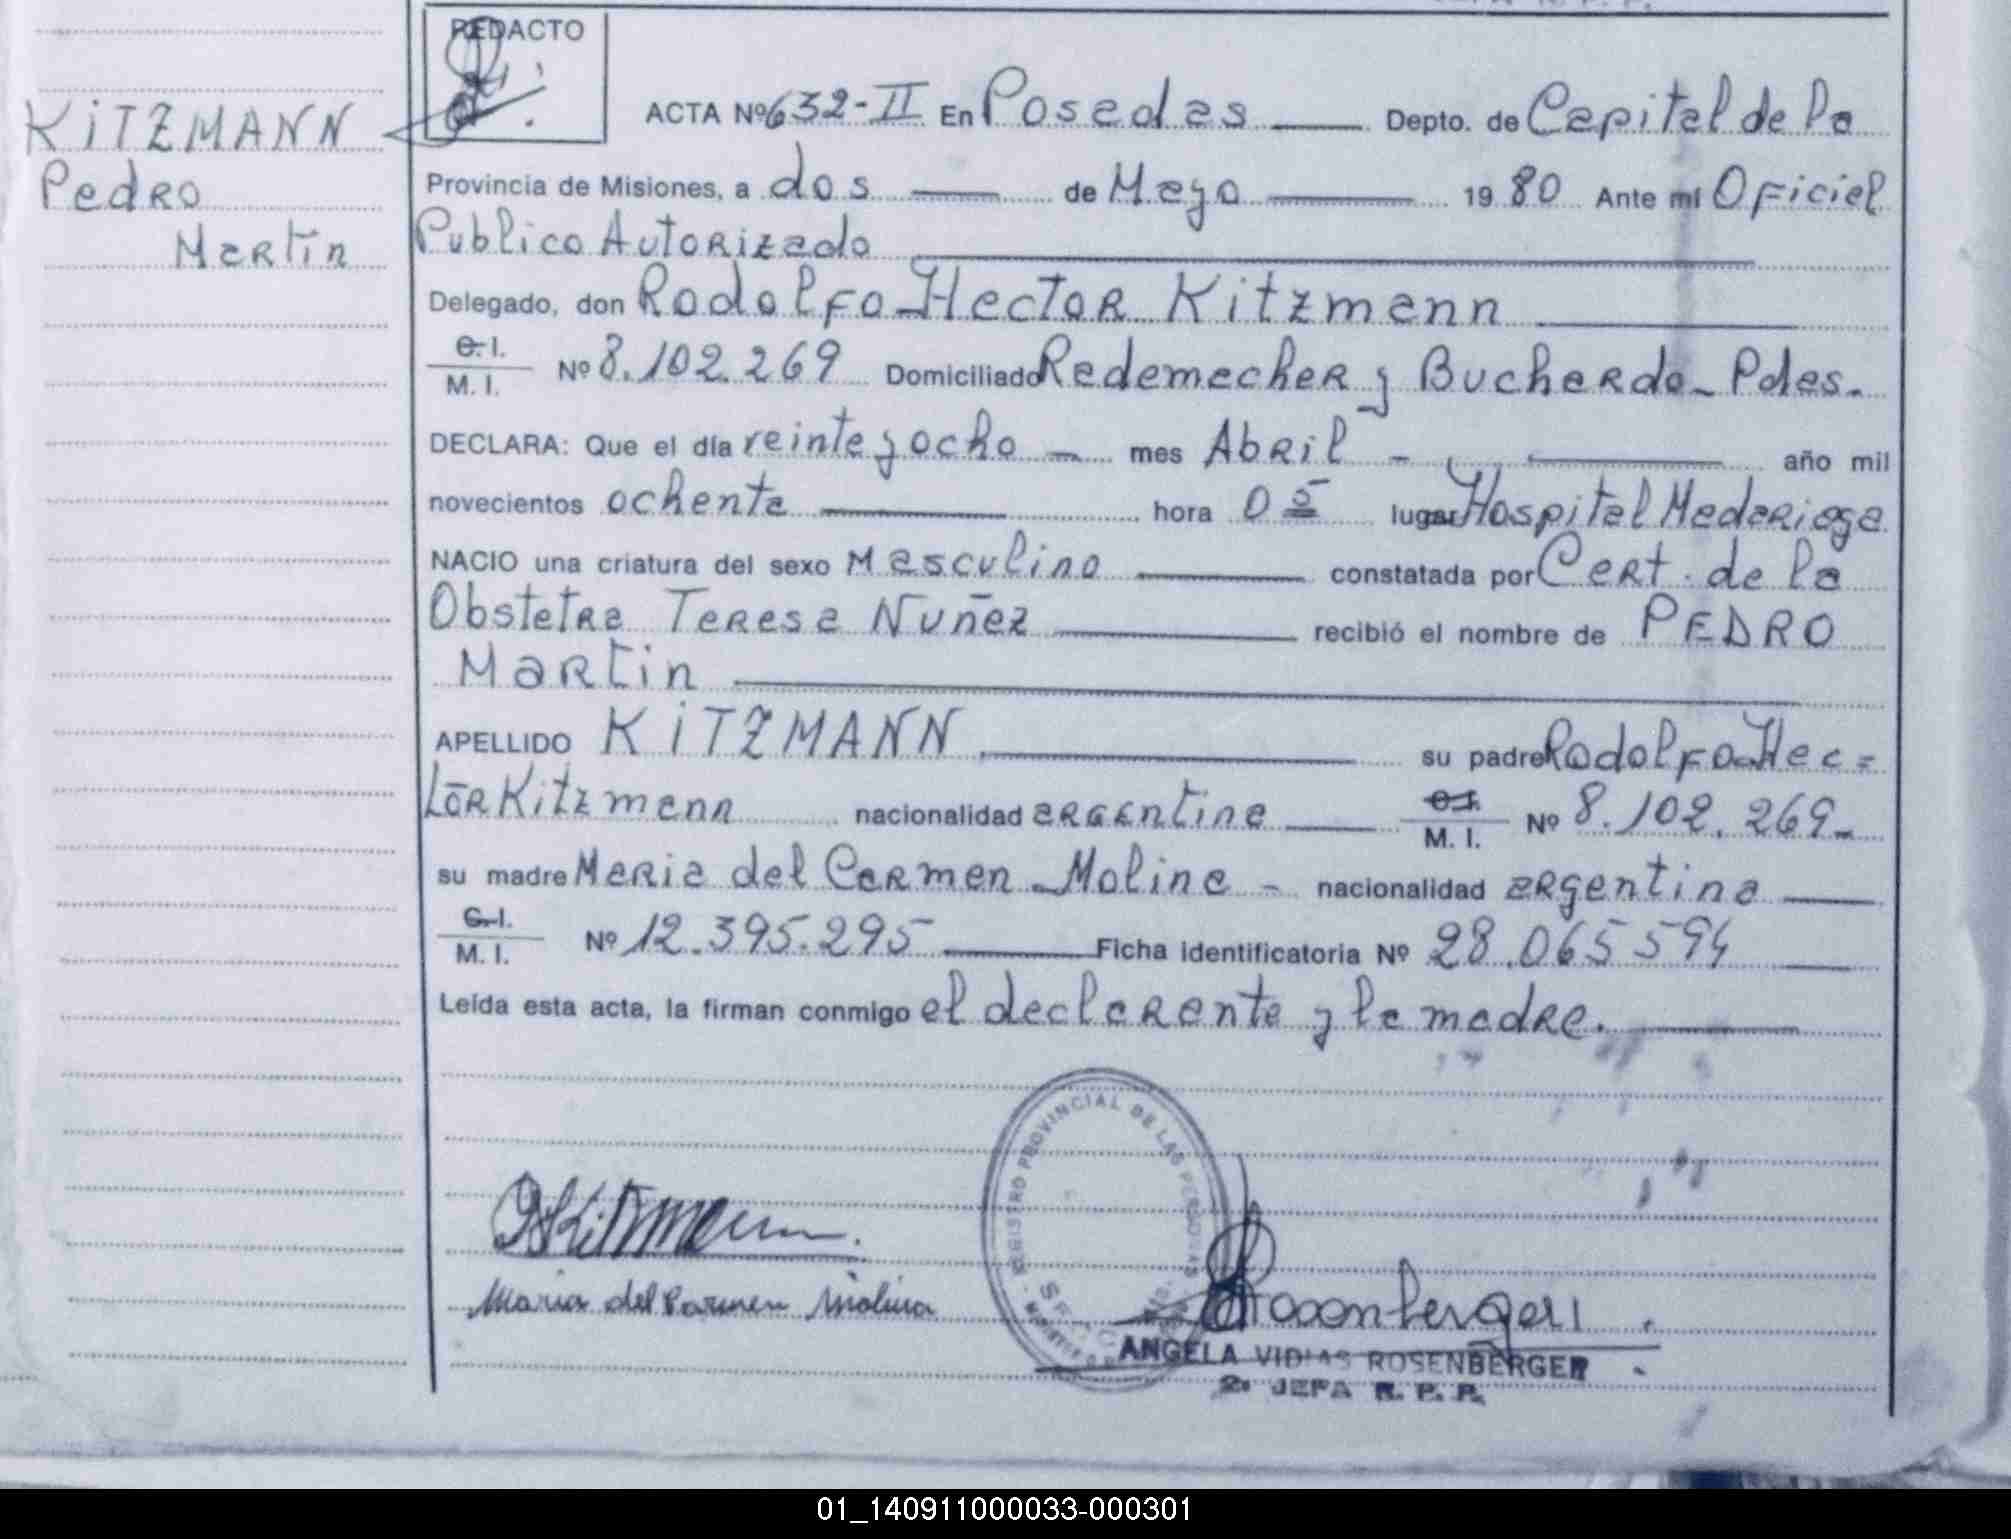 REDACTO
KiTZMANN
Pedro
Martin
ACTA Nº 632-II En Posadas Depto. de Capital de la
Provincia de Misiones, a dos de Mayo 1980 Ante mí Oficial
Publico Autorizado
Delegado, don Rodolfo Hector Kitzmann
C. I. M. I. Nº 8.102.269 Domiciliado Rademacher y Buchardo - Pdas.
DECLARA: Que el día veinte y ocho - mes Abril - año mil
novecientos ochenta hora 05 lugar Hospital Madariaga
NACIO una criatura del sexo Masculino constatada por Cert. de la
Obstetra Teresa Nuñez recibió el nombre de PEDRO
Martin
APELLIDO KiTZMANN su padre Rodolfo Hec=
tor Kitzmann nacionalidad argentina C.I. M. I. Nº 8.102.269-
su madre Maria del Carmen Molina - nacionalidad argentina
C.I. M. I. Nº 12.395.295 Ficha identificatoria Nº 28.065594
Leída esta acta, la firman conmigo el declarante y la madre.
REGISTRO PROVINCIAL DE LAS PERSONAS
Kitzmann.
Maria del Carmen Molina
Rosenberger
ANGELA VIDIAS ROSENBERGER
2º JEFA R. P. P.
01_140911000033-000301